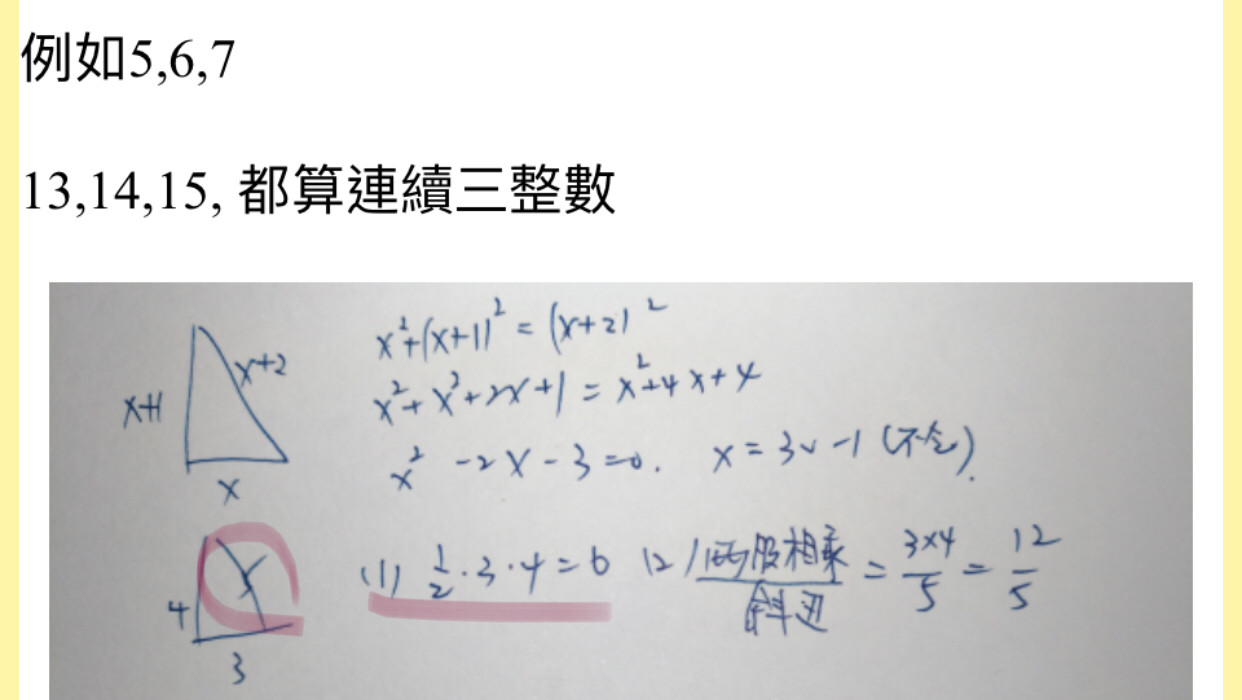 例如5,6,7
13,14,15, 都算連續三整數
x+2
x+1
x
x²+(x+1)²=(x+2)²
x²+x²+2x+1=x²+4x+4
x²-2x-3=0. x=3∨-1(不合).
4
3
(1) 1/2·3·4=6 (2) 兩股相乘/斜边 = 3×4/5 = 12/5